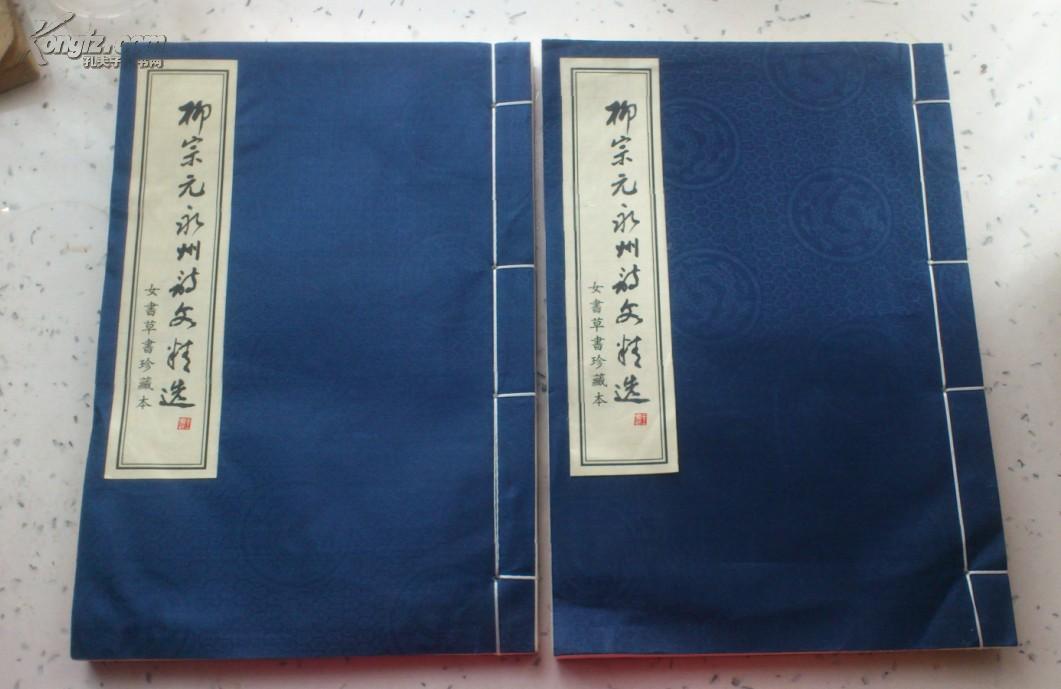 Kongfz.com
孔夫子旧书网
柳宗元永州诗文精选
女書草書珍藏本
柳宗元永州诗文精选
女書草書珍藏本